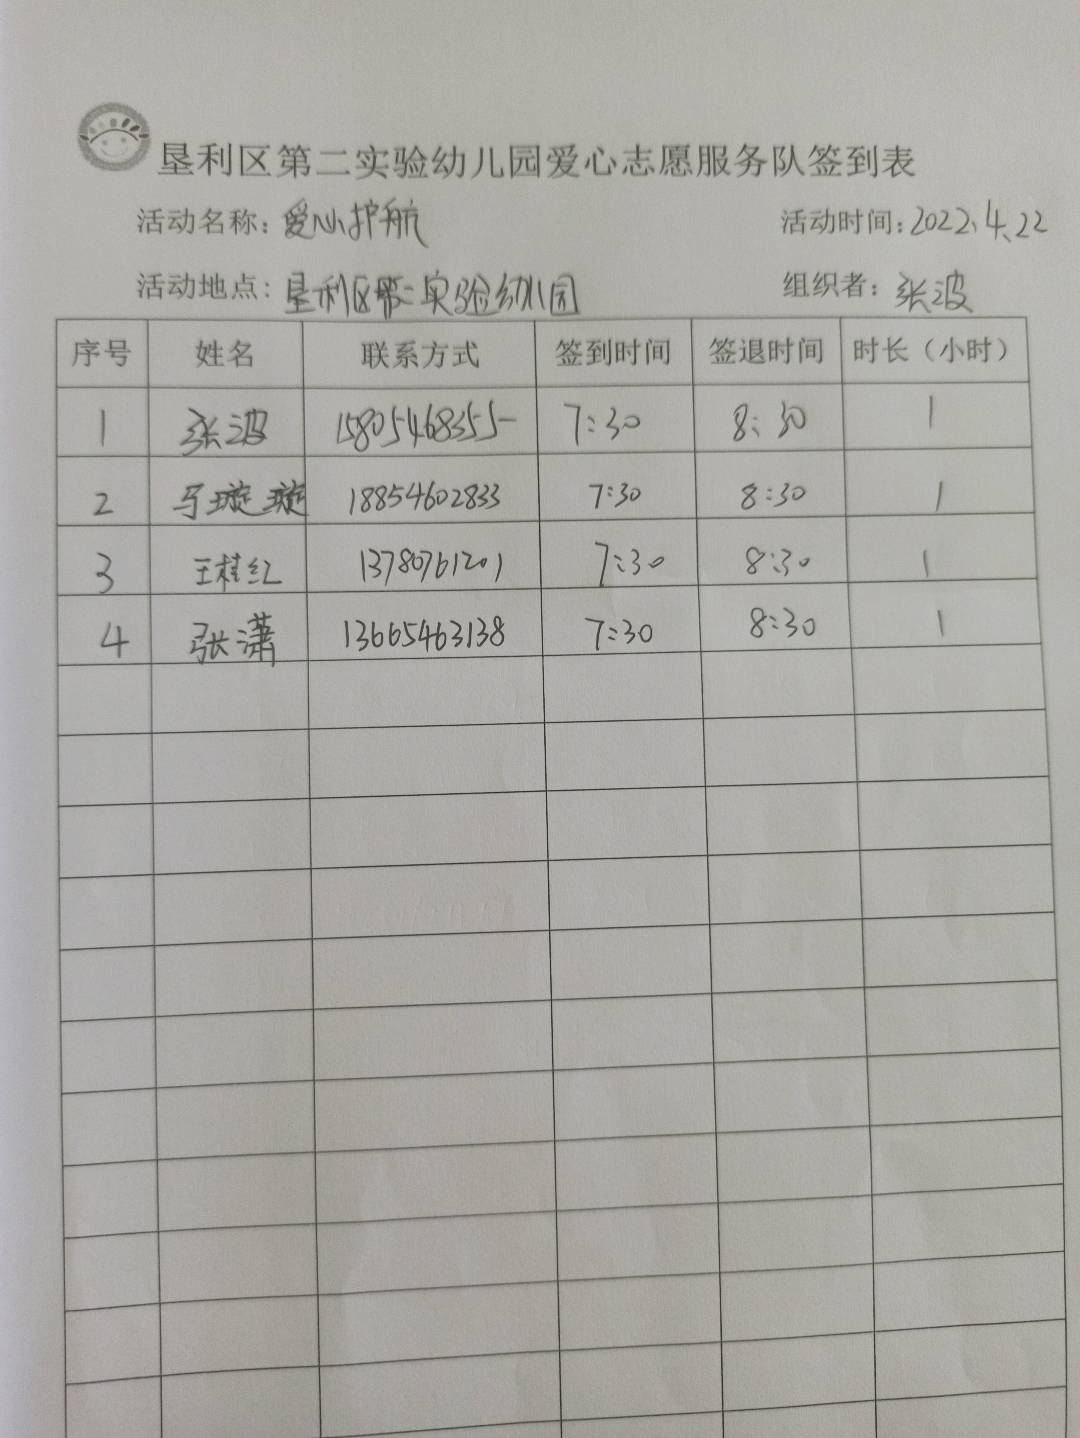 垦利区第二实验幼儿园爱心志愿服务队签到表
活动名称：爱心护航 活动时间：2022.4.22
活动地点：垦利区第二实验幼儿园 组织者：张波
序号 姓名 联系方式 签到时间 签退时间 时长（小时）
1 张波 15805468355 7:30 8:30 1
2 马璇璇 18854602833 7:30 8:30 1
3 王桂红 13780761201 7:30 8:30 1
4 张潇 13665463138 7:30 8:30 1